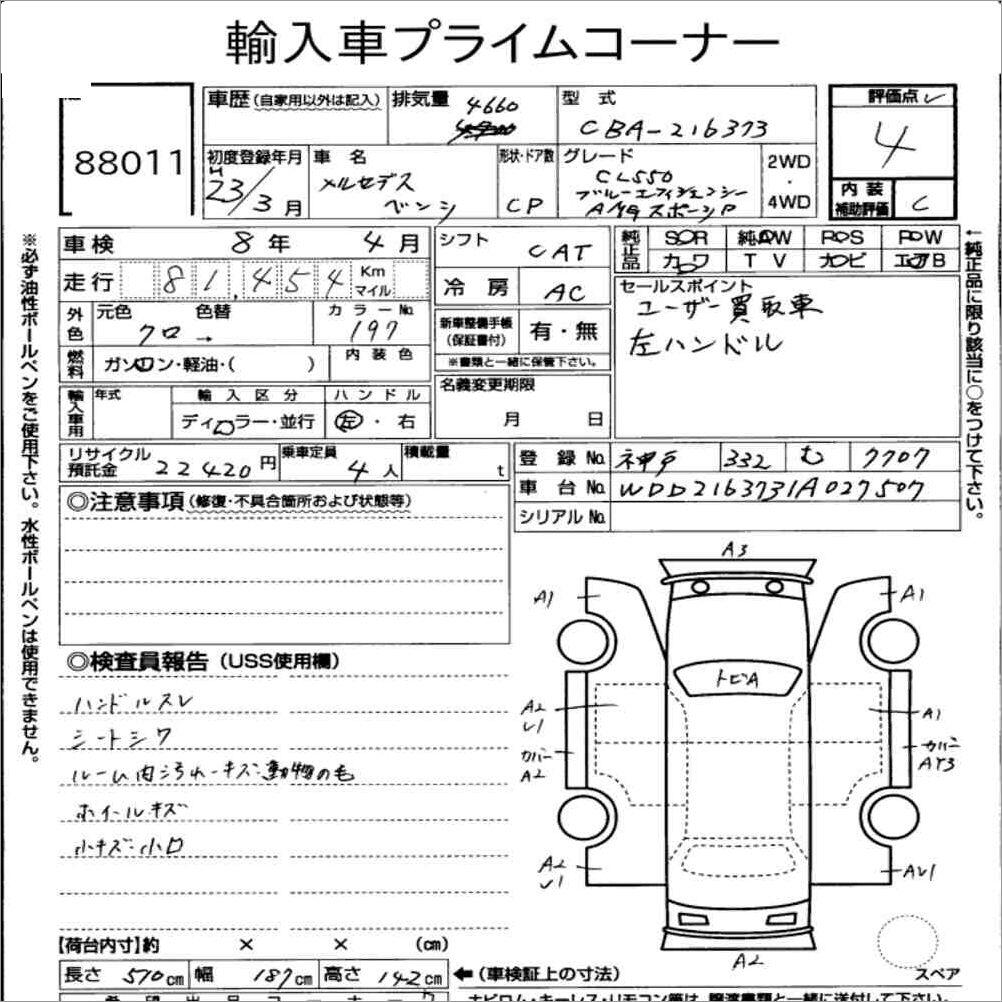 輸入車プライムコーナー
88011
車歴(自家用以外は記入)
排気量 4660
型式 CBA-216373
評価点
4
初度登録年月 H23/3月
車名 メルセデスベンツ
形状・ドア数 CP
グレード CL550
ブルーエフィシェンシー
AMGスポーツP
2WD
・
4WD
内装補助評価 C
車検 8年 4月
走行 81,454 Km マイル
外色 元色 クロ → 色替
カラーNo. 197
燃料 ガソリン・軽油・( )
内装色
輸入車用 年式
輸入区分 ディーラー・並行
ハンドル 左・右
シフト CAT
冷房 AC
新車整備手帳(保証書付) 有・無
※書類と一緒に保管下さい。
名義変更期限
月 日
純正品 SR 純AW PS PW
カワ TV ナビ エアB
セールスポイント
ユーザー買取車
左ハンドル
リサイクル預託金 22420円
乗車定員 4人
積載量 t
登録No. 神戸 332 む 7707
車台No. WDD2163731A027507
シリアルNo.
◎注意事項(修復・不具合箇所および状態等)
◎検査員報告(USS使用欄)
ハンドルスレ
シートシワ
ルーム内汚れ・キズ・動物の毛
ホイールキズ
小キズ・小凹
A3
A1
A1
トビA
A2
U1
A1
カバー
A2
カバー
AY3
A2
U1
AU1
A2
スペア
【荷台内寸】約 × × (cm)
長さ 510cm 幅 187cm 高さ 142cm
←(車検証上の寸法)
※必ず油性ボールペンをご使用下さい。水性ボールペンは使用できません。
←純正品に限り該当に○をつけて下さい。